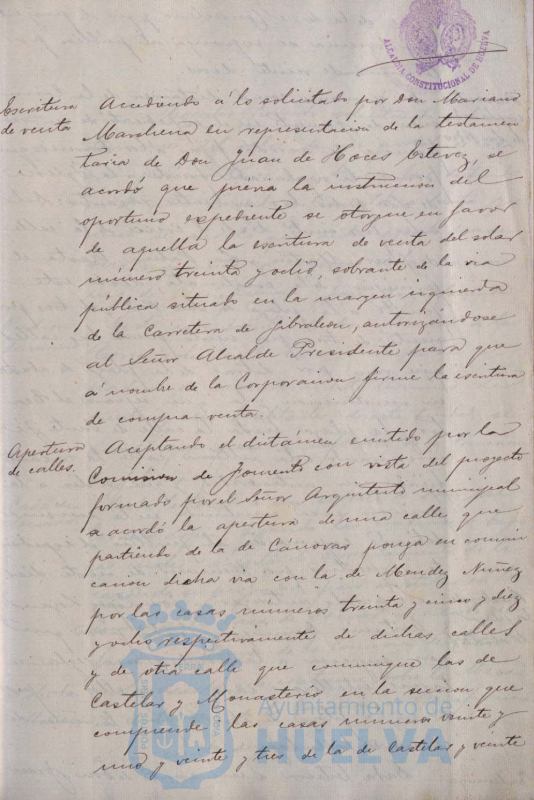 ALCALDIA CONSTITUCIONAL DE HUELVA
Escritura
de venta
Accediendo á lo solicitado por Don Mariano
Marchena en representacion de la testamen
taria de Don Juan de Hoces Estevez, se
acordó que prévia la instruccion del
oportuno expediente se otorgue en favor
de aquella la escritura de venta del solar
número treinta y ocho, sobrante de la via
pública situado en la margen izquierda
de la Carretera de Gibraleon, autorizándose
al Señor Alcalde Presidente para que
á nombre de la Corporacion firme la escritura
de compra-venta.
Apertura
de calles.
Aceptando el dictámen emitido por la
Comision de Fomento con vista del proyecto
formado por el Señor Arquitecto municipal
se acordó la apertura de una calle que
partiendo de la de Cánovas ponga en comuni
cacion dicha via con la de Mendez Nuñez
por las casas números treinta y cinco y diez
y ocho respectivamente de dichas calles
y de otra calle que comunique las de
Castelar y Monasterio en la seccion que
comprende las casas numeros veinte y
uno y veinte y tres de la de Castelar y veinte
Ayuntamiento de
HUELVA